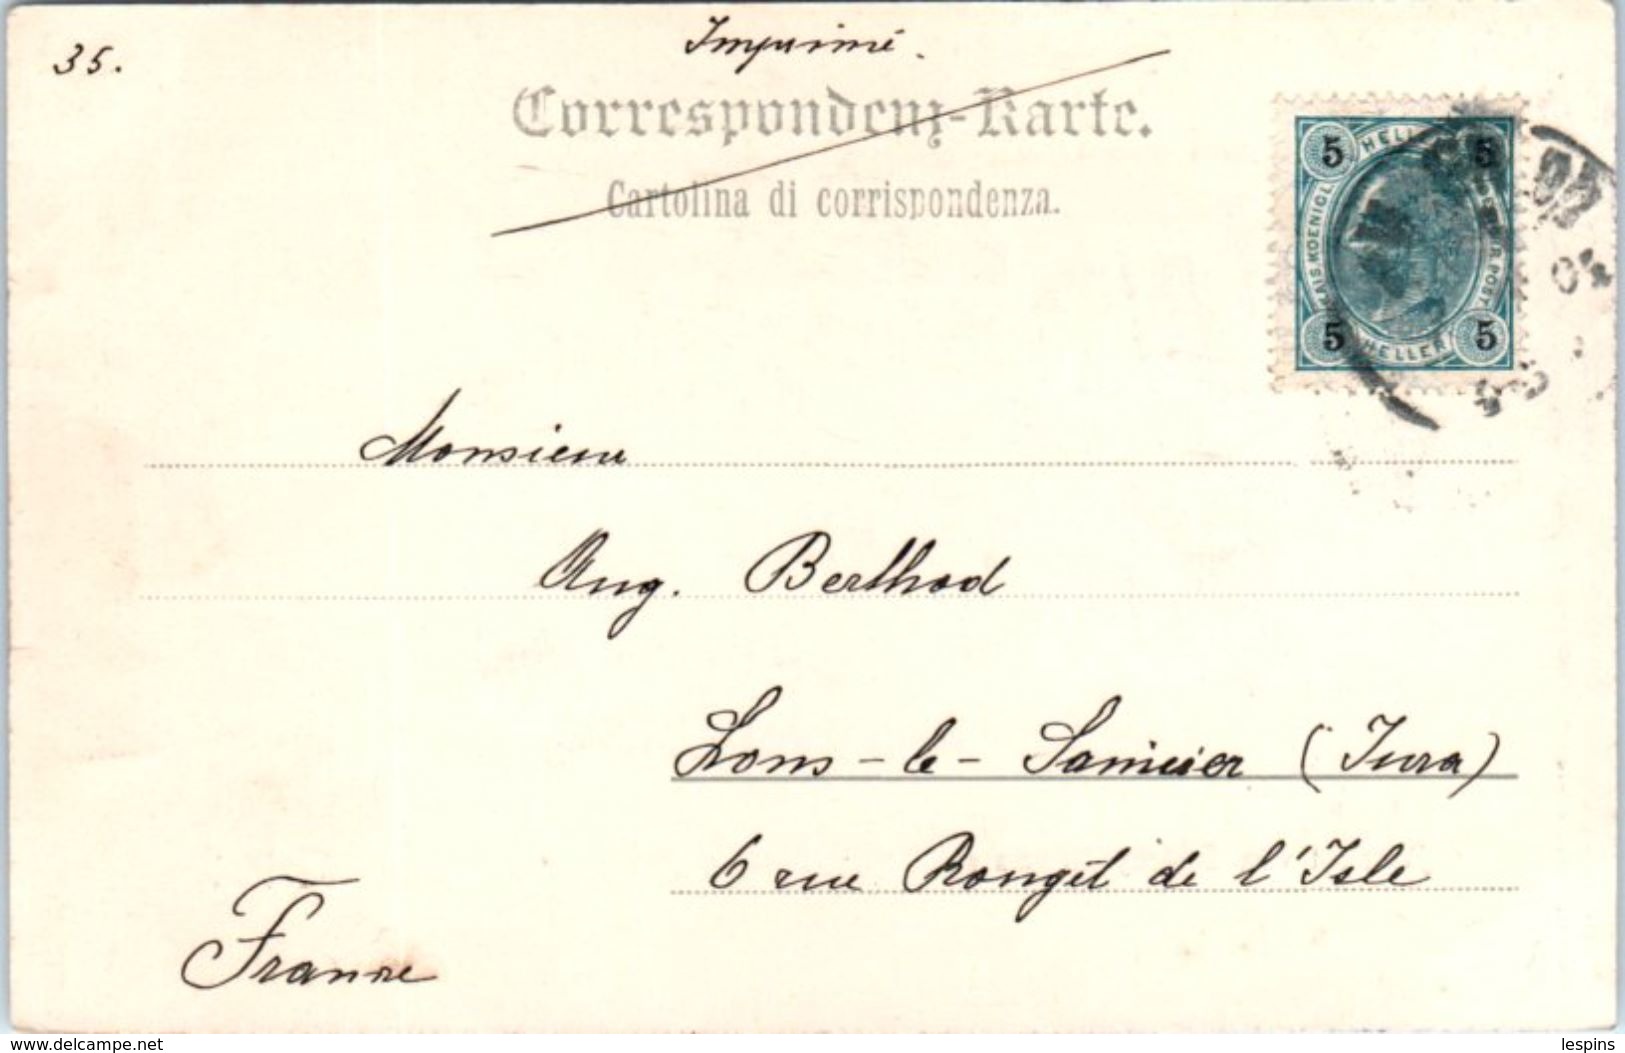 35.
Imprimé.
Correspondenz-Karte.
Cartolina di corrispondenza.
5 HELLER 5
KAIS. KOENIGL.
POST.
5 HELLER 5
04
Monsieur
Aug. Berthod
Lons-le-Saunier (Jura)
6 rue Rouget de l'Isle
France
www.delcampe.net
lespins